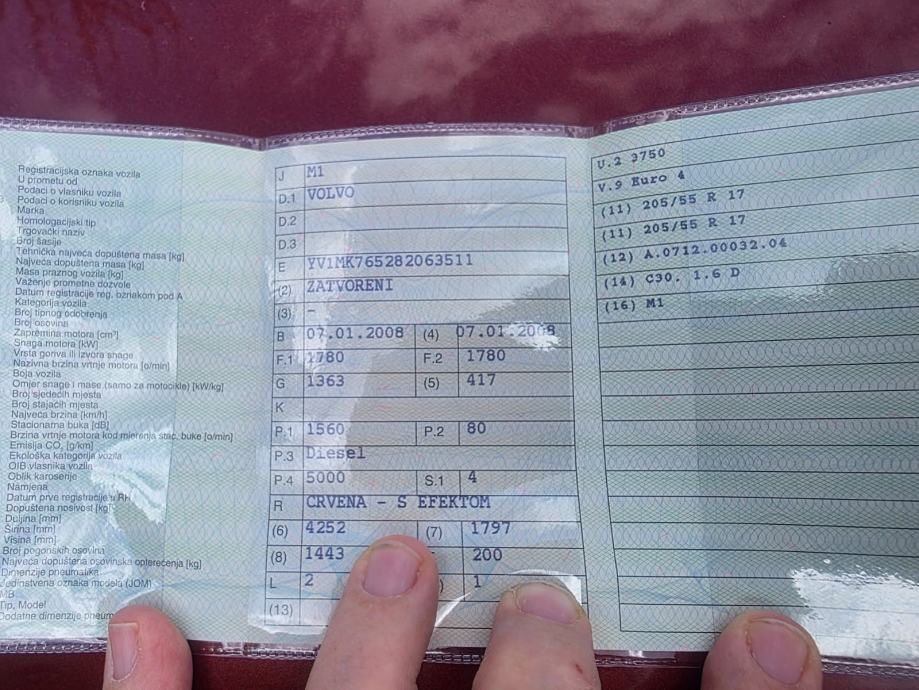 Registracijska oznaka vozila
U prometu od
Podaci o vlasniku vozila
Podaci o korisniku vozila
Marka
Homologacijski tip
Trgovački naziv
Broj šasije
Tehnička najveća dopuštena masa [kg]
Najveća dopuštena masa [kg]
Masa praznog vozila [kg]
Važenje prometne dozvole
Datum registracije reg. oznakom pod A
Kategorija vozila
Broj tipnog odobrenja
Broj osovina
Zapremina motora [cm³]
Snaga motora [kW]
Vrsta goriva ili izvora snage
Nazivna brzina vrtnje motora [o/min]
Boja vozila
Omjer snage i mase (samo za motocikle) [kW/kg]
Broj sjedećih mjesta
Broj stajaćih mjesta
Najveća brzina [km/h]
Stacionarna buka [dB]
Brzina vrtnje motora kod mjerenja stac. buke [o/min]
Emisija CO₂ [g/km]
Ekološka kategorija vozila
OIB vlasnika vozila
Oblik karoserije
Namjena
Datum prve registracije u RH
Dopuštena nosivost [kg]
Duljina [mm]
Širina [mm]
Visina [mm]
Broj pogonskih osovina
Najveća dopuštena osovinska opterećenja [kg]
Dimenzije pneumatika
Jedinstvena oznaka modela (JOM)
MB
Tip, Model
Dodatne dimenzije pneum
J M1
D.1 VOLVO
D.2
D.3
E YV1MK765282063511
(2) ZATVORENI
(3) –
B 07.01.2008 (4) 07.01.2008
F.1 1780 F.2 1780
G 1363 (5) 417
K
P.1 1560 P.2 80
P.3 Diesel
P.4 5000 S.1 4
R CRVENA – S EFEKTOM
(6) 4252 (7) 1797
(8) 1443 200
L 2 1
(13)
U.2 3750
V.9 Euro 4
(11) 205/55 R 17
(11) 205/55 R 17
(12) A.0712.00032.04
(14) C30. 1.6 D
(16) M1